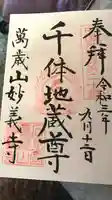 奉拝 令和三年
九月十二日
千体地蔵尊
萬歳山妙義寺